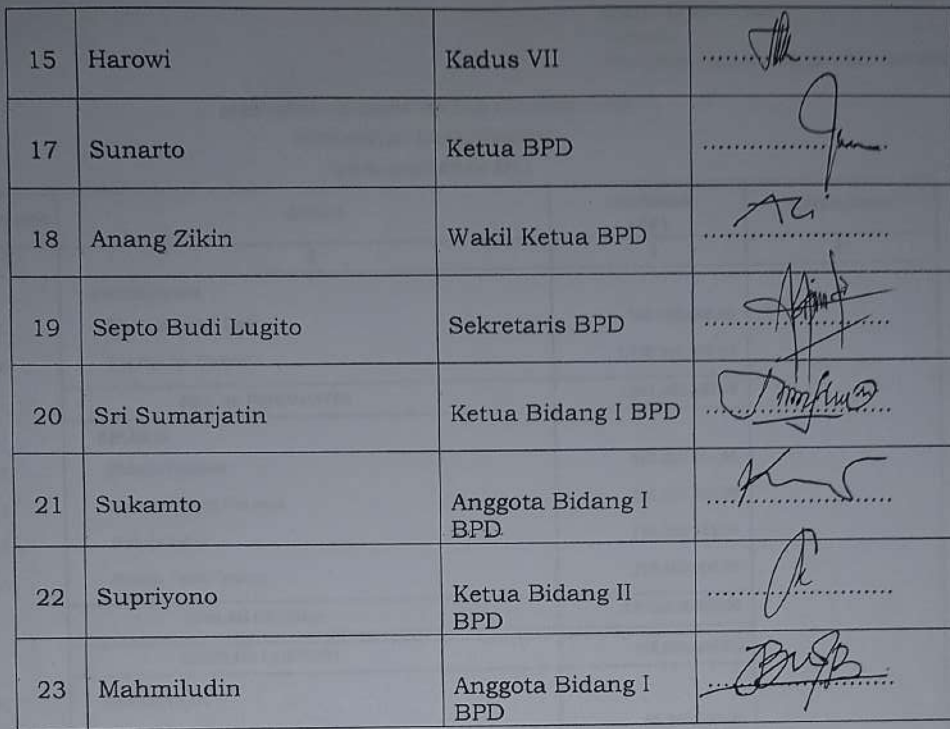 15 Harowi Kadus VII
17 Sunarto Ketua BPD
18 Anang Zikin Wakil Ketua BPD
19 Septo Budi Lugito Sekretaris BPD
20 Sri Sumarjatin Ketua Bidang I BPD
21 Sukamto Anggota Bidang I
BPD
22 Supriyono Ketua Bidang II
BPD
23 Mahmiludin Anggota Bidang I
BPD